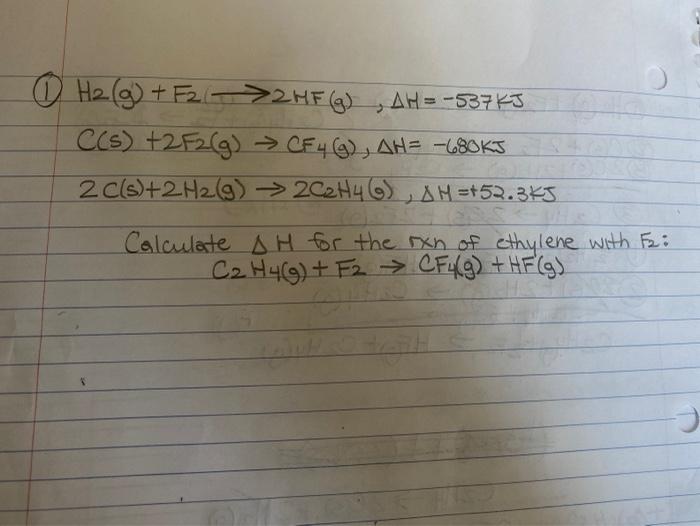 ① H2(g) + F2 → 2HF(g), ΔH = -537KJ
C(s) + 2F2(g) → CF4(g), ΔH = -680KJ
2C(s) + 2H2(g) → 2C2H4(g), ΔH = +52.3KJ
Calculate ΔH for the rxn of ethylene with F2:
C2H4(g) + F2 → CF4(g) + HF(g)